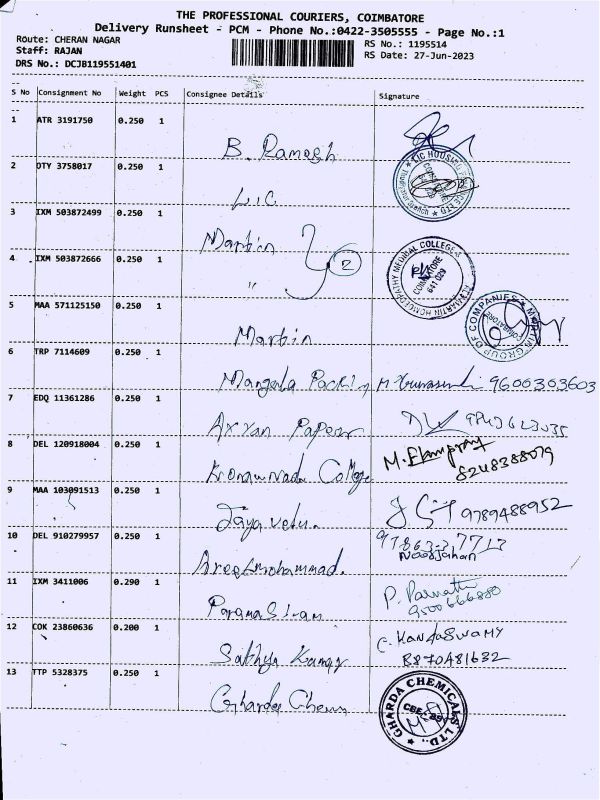 THE PROFESSIONAL COURIERS, COIMBATORE
Delivery Runsheet - PCM - Phone No.:0422-3505555 - Page No.:1
Route: CHERAN NAGAR
RS No.: 1195514
Staff: RAJAN
RS Date: 27-Jun-2023
DRS No.: DCJB119551401
S No Consignment No Weight PCS Consignee Details Signature
1 ATR 3191750 0.250 1
B. Ramesh
2 OTY 3758017 0.250 1
L.I.C.
3 IXM 503872499 0.250 1
Martin
4 IXM 503872666 0.250 1
" 2
MARTIN HOMOEOPATHY MEDICAL COLLEGE
COIMBATORE
641 029
5 MAA 571125150 0.250 1
Martin
GROUP OF COMPANIES MARTIN
6 TRP 7114609 0.250 1
Mangala Packing 9600303603
7 EDQ 11361286 0.250 1
Papers
8 DEL 120918004 0.250 1
College M. 8248388079
9 MAA 103091513 0.250 1
Jaya 9789488952
10 DEL 910279957 0.250 1
Noorjahan
11 IXM 3411006 0.290 1
P. Parvathi
9500666880
12 COK 23860636 0.200 1
Sathya Kumar C. KANDASWAMY
8870481632
13 TTP 5328375 0.250 1
Gharda Chem
GHARDA CHEMICALS LTD.